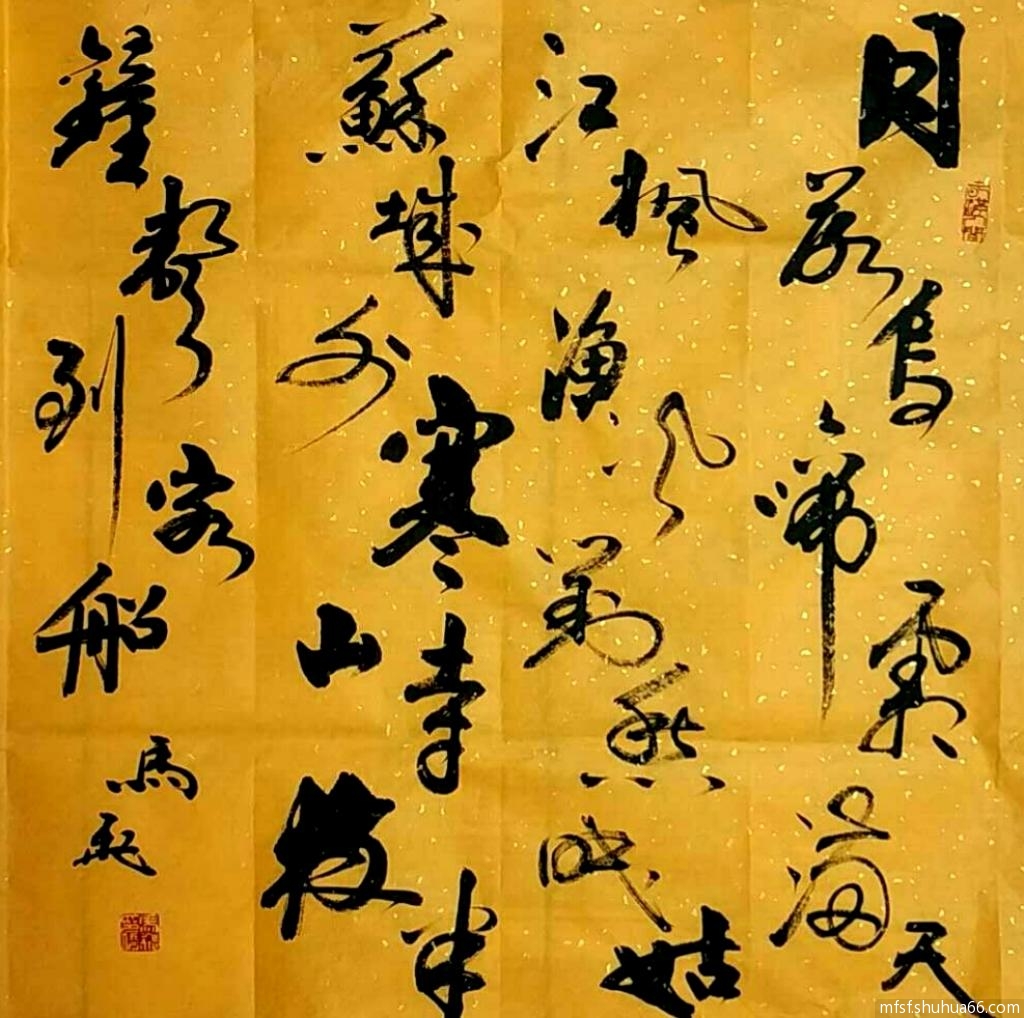 月落烏啼霜滿天
江楓漁火對愁眠姑
蘇城外寒山寺夜半
鐘聲到客船
馬
mfsf.shuhua66.com